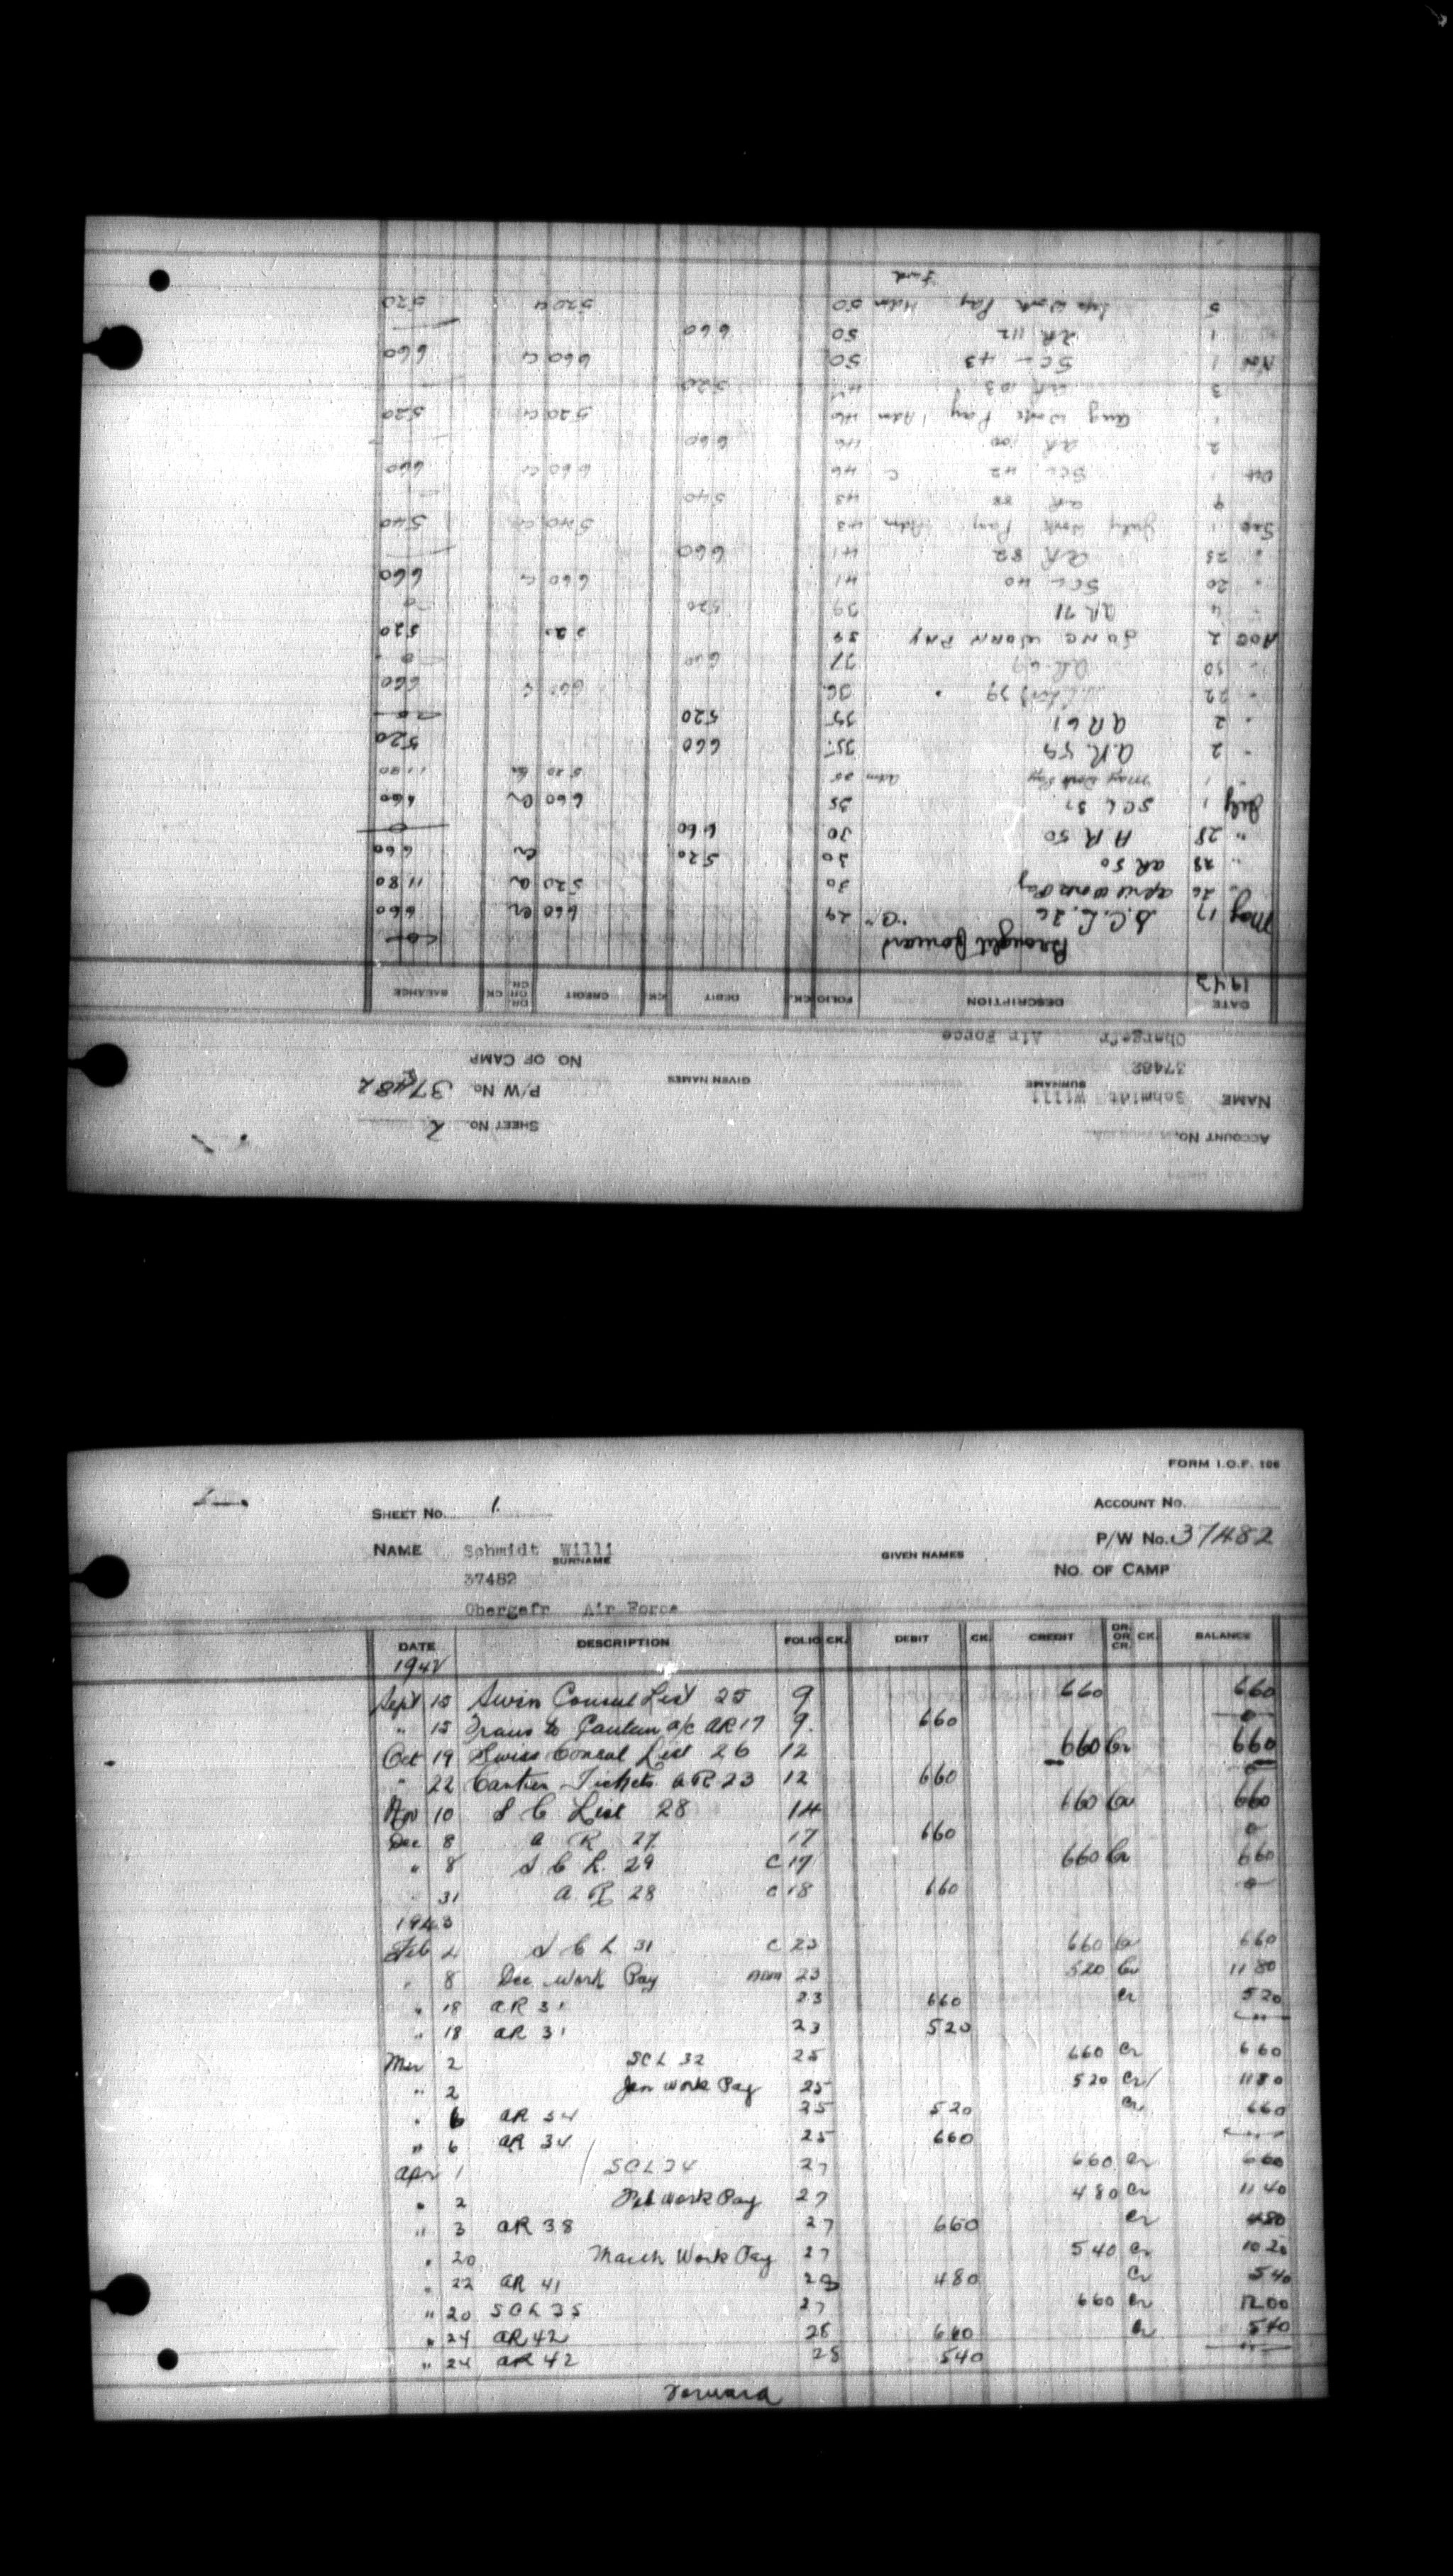 FORM I.O.F. 106
SHEET NO. 1. ACCOUNT NO.
P/W NO. 37482
NAME Schmidt Willi
SURNAME GIVEN NAMES
37482 NO. OF CAMP
Obergefr Air Force
DATE DESCRIPTION FOLIO CK. DEBIT CK. CREDIT DR. OR CR. CK. BALANCE
1942
Sept 15 Swiss Consul List 25 9 660 660
" 15 Trans to Canteen a/c AR 17 9. 660 0
Oct 19 Swiss Consul List 26 12 660 Cr 660
" 22 Canteen Tickets AR 23 12 660 0
Nov 10 S C List 28 14 660 Cr 660
Dec 8 A R 27 17 660 0
" 8 S C L. 29 C 17 660 Cr 660
31 A. R 28 C 18 660 0
1943
Feb 4 S C L 31 C 23 660 Cr 660
" 8 Dec Work Pay ADM 23 520 Cr 11 80
" 18 AR 31 23 660 Cr 520
" 18 AR 31 23 520
Mar 2 SCL 32 25 660 Cr 660
" 2 Jan Work Pay 25 520 Cr 1180
" 6 AR 34 25 520 Cr 660
" 6 AR 34 25 660
Apr 1 SCL 34 27 660 Cr 660
" 2 Feb Work Pay 27 480 Cr 11 40
" 3 AR 38 27 660 Cr 480
" 20 March Work Pay 27 540 Cr 10 20
" 22 AR 41 28 480 Cr 540
" 20 SCL 35 27 660 Cr 12 00
" 24 AR 42 28 660 Cr 540
" 24 AR 42 28 540
Forward
ACCOUNT NO. SHEET NO. 2
NAME Schmidt Willi P/W NO. 37482
SURNAME GIVEN NAMES
37482 NO OF CAMP
Obergefr Air Force
DATE DESCRIPTION FOLIO CK. DEBIT CK. CREDIT DR. OR CR. CK. BALANCE
1943
Brought Forward 0
May 17 S.C.L. 36 "C" 29 660 Cr 660
26 April Work Pay 30 520 Cr 11 80
" 28 AR 50 30 520 Cr 660
" 28 A R 50 30 660 0
July 1 SCL 37 35 660 Cr 660
" 1 May Work Pay Adm 35 520 Cr 11 80
" 2 A.R. 59 35 660 520
" 2 AR 61 35 520 0
" 22 39 36 660 660
" 30 AR 69 37 660 0
AUG 2 JUNE WORK PAY 38 520 520
" 4 AR 71 39 520 0
" 20 SCL 40 41 660 Cr 660
" 25 AR 82 41 660
Sep 1 July Work Pay Adm 43 540 Cr 540
9 AR 88 43 540
Oct 1 SCL 42 C 46 660 Cr 660
2 AR 100 46 660
1 Aug Work Pay Adm 46 520 Cr 520
3 AR 103 47 520
Nov 1 SCL 43 50 660 Cr 660
1 AR 112 50 660
5 Sep Work Pay Adm 50 520 Cr 520
Fwd